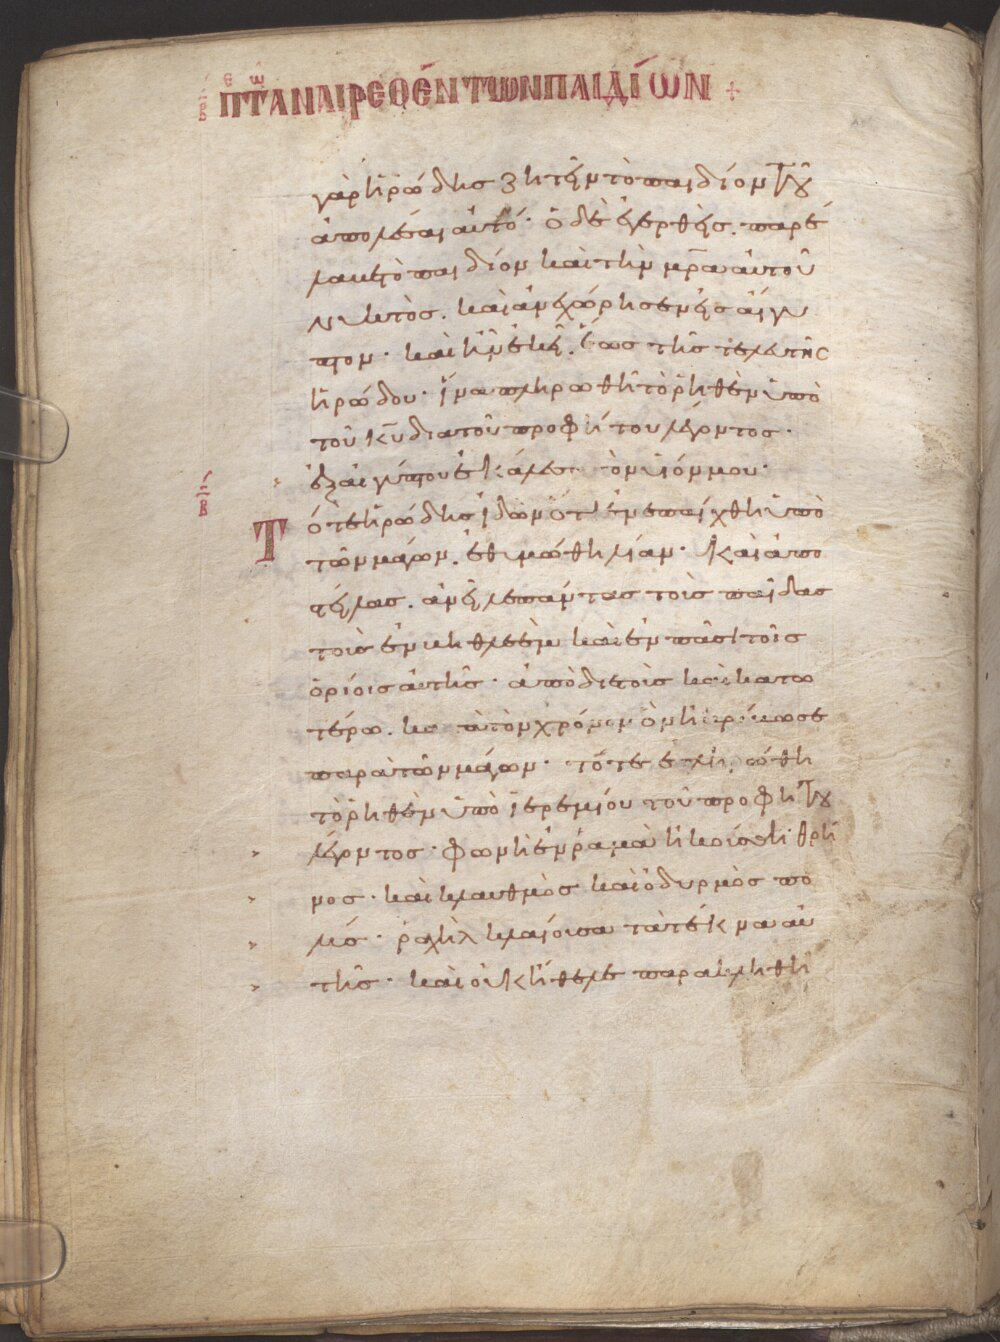 Β ΠΕΡΙ ΤΩΝ ΑΝΑΙΡΕΘΕΝΤΩΝ ΠΑΙΔΙΩΝ +
γὰρ ἡρώδης ζητεῖν τὸ παιδίον τοῦ
ἀπολέσαι αὐτό· ὁ δὲ ἐγερθεὶς. παρέ
λαβε τὸ παιδίον καὶ τὴν μρα αὐτοῦ
νυκτὸς. καὶ ἀνεχώρησεν εἰς αἴγυ
πτον· καὶ ἦν ἐκεῖ. ἕως τῆς τελευτῆς
ἡρώδου· ἵνα πληρωθῆ τὸ ῥηθὲν ὑπὸ
τοῦ κυ διὰ τοῦ προφήτου λέγοντος·
ἐξ αἰγύπτου ἐκάλεσα τὸν υἱόν μου·
Β
Τότε ἡρώδης ἰδὼν ὅτι ἐνεπαίχθη ὑπὸ
τῶν μάγων. ἐθυμώθη λίαν· καὶ ἀπο
στείλας. ἀνεῖλε πάντας τοὺς παῖδας
τοὺς ἐν βηθλεὲμ καὶ ἐν πᾶσι τοῖς
ὁρίοις αὐτῆς· ἀπὸ διετοῦς καὶ κατω
τέρω. κατὰ τὸν χρόνον ὃν ἠκρίβωσε
παρὰ τῶν μάγων· τότε ἐπληρώθη
τὸ ῥηθὲν ὑπὸ ἱερεμίου τοῦ προφήτου
λέγοντος· φωνὴ ἐν ῥαμὰ ἠκούσθη· θρῆ
νος· καὶ κλαυθμὸς καὶ ὀδυρμὸς πο
λύς· ῥαχὴλ κλαίουσα τὰ τέκνα αὐ
τῆς· καὶ οὐκ ἤθελε παρακληθῆ